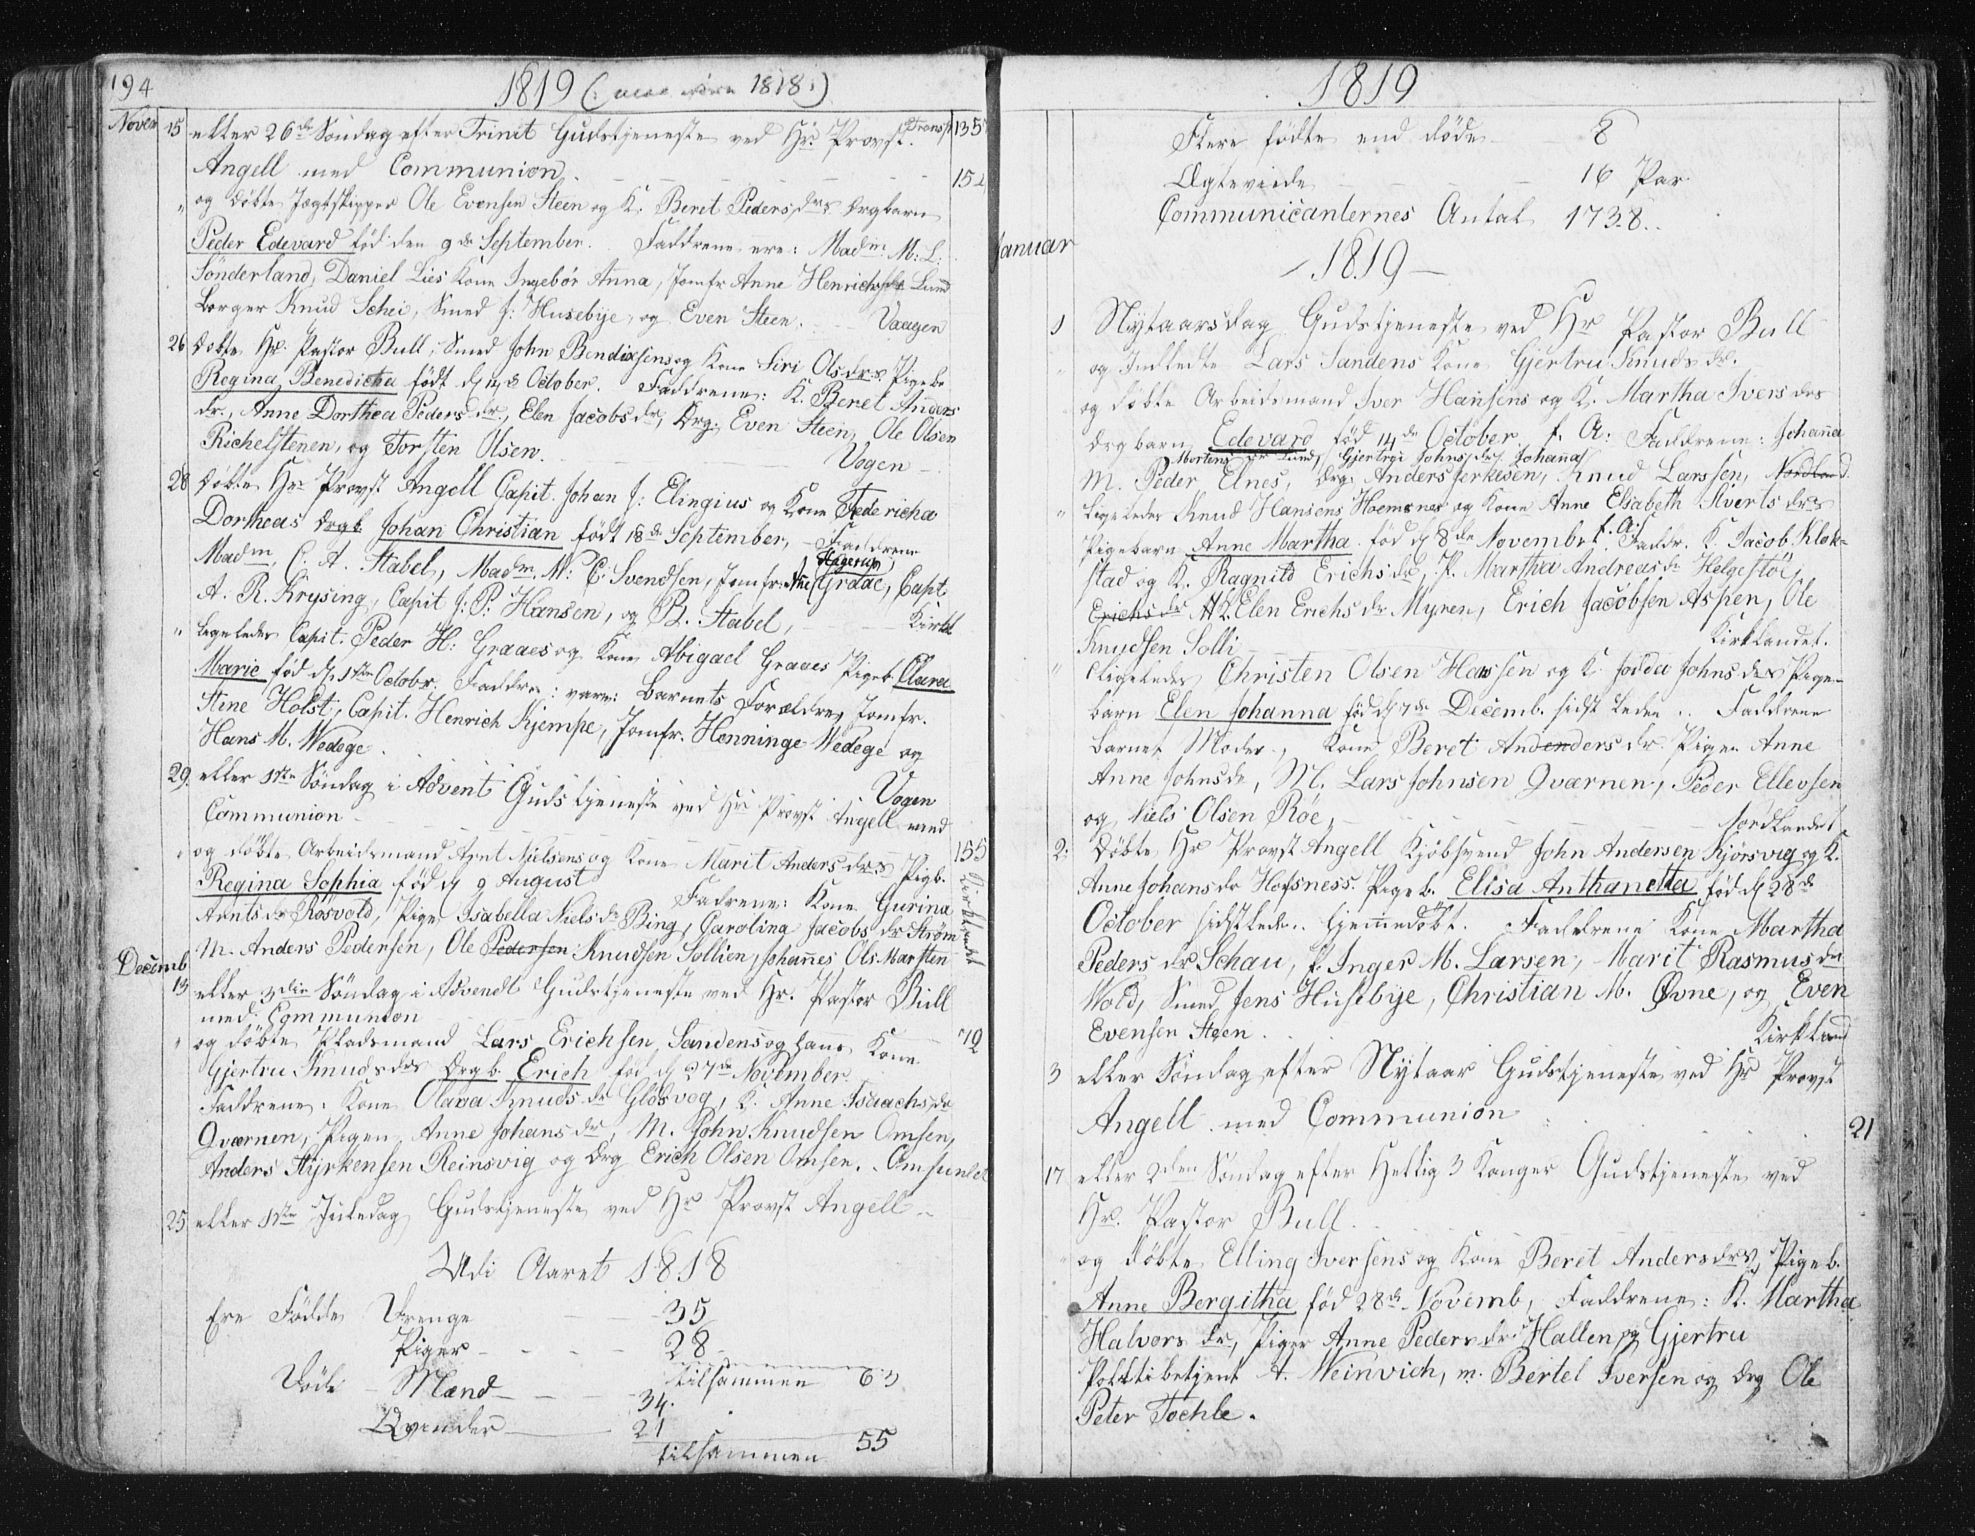 194
1819 (: 1818:)
Novem 15 eller 26de Søndag efter Trinit Gudstjeneste ved Hr. Provst. Transp 135
Angell med Communion 152
" og døbte Jagtskipper Ole Evensen Steen og K. Beret Peders drs Drgbarn
Peder Edevard fød den 9de September. Faddrene ere: Madm. M: L:
Sønderland, Daniel Lies Kone Ingebor Anna, Jomfr Anne Henrichsdr Lund
Borger Knud Schei, Smed J: Husebye, og Even Steen. Vaagen
26 Døbte Hr. Pastor Bull, Smed John Bendixsens og Kone Siri Ols drs Pigeb
Regina Benedicta født d October. Faddrene: K. Beret Anders
dr., Anne Dorthea Peders dr., Elen Jacobs dr, Drg. Even Steen, Ole Olsen
Richelstenen, og Torsten Olsen. Vogen
28 Døbte Hr Provst Angell Capit. Johan J: Elingius og Kone Frederícha
Dortheas Drgb. Johan Christian født 18de September, Faddrene
Madm. C. A. Stabel, Madm. M: C: Svendsen, Jomfr: Ane Hagerup Graae, Capt
A. R. Krysing, Capit J: P: Hansen, og B. Stabel, Kirkl
" Ligeledes Capit. Peder H: Graaes og Kone Abigael Graaes Pigeb Clara
Marie fød d 1ste Octobr. Faddrne: vare: Barnets Forældre, Jomfr.
Stine Holst, Capit. Henrich Kjempe, Jomfr. Henninge Wedege og
Hans M. Wedege. Vogen
29. eller 1ste Søndag i Advent Gudstjeneste ved Hr Provst Angell med
Communion 155
" og døbte Arbeidsmand Arnt Nielsens og Kone Marit Anders drs Pigb.
Regina Sophia fød d 9 August Fadrene: Kone Gurina
Arnts dr Røsvold, Pige Isabella Niels dr Bing, Carolina Jacobs dr Strøm
M. Anders Pedersen, Ole Pedersen Knudsen Sollien, Johannes Ols. Marsten Kirklandet
Decemb
13 eller 3die Søndag i Advendt Gudstjeneste ved Hr. Pastor Bull
med Communion 72
" og døbte Pladsmand Lars Erichsen Sandens og hans Kone
Gjertru Knuds drs Drgb. Erich fød d 27de November.
Faddrene: Kone Olava Knuds dr Glosvog, K. Anne Isaachs dr
Qværnen, Pigen Anne Johans dr, M. John Knudsen Omsen,
Anders Styrkersen Reinsvig og Drg Erich Olsen Omsen. Omsundet
25 eller 1ste Juledag Gudstjeneste ved Hr Provst Angell
Udi Aaret 1818
Ere Fødde Drenge 35
Piger 28
tilsammen 63
Døde Mænd 34.
Qvinder 21
tilsammen 55
1819
Flere fødte end døde 8
Ægteviede 16 Par
Communicanternes Antal 1738..
Januar 1819
1 Nytaarsdag Gudstjeneste ved Hr Pastor Bull
" og Indledte Lars Sandens Kone Gjertru Knuds dr.
og døbte Arbeidsmand Iver Hansens og K. Martha Ivers drs
Drgbarn Edevard fød 14de October f. A: Faddrene: Johana
Mortens dr Lund, Gjertru Johnsdr Johana
M. Peder Elnes, Drg. Anders Jerkesen, Knud Larssen, Nordland
" Ligeledes Knud Hansens Hoemsnes og Kone Anne Elsabeth Siverts drs
Pigebarn Anne Martha fød d 8de November f. A. Faddr. K. Jacob Klok-
stad og K. Ragnild Erichs dr, P. Martha Andreas dr Helgestøe,
Erichs dr K. Elen Erichs dr Myren, Erich Jacobsen Aspen, Ole
Knudsen Solli Kirklandet.
" Ligeledes Christen Olsen Hassen og K. Jodda Johns drs Pige-
barn Elen Johanna fød d 7de Decemb. sidst leden. Faddrene
Barnet Moder, Kone Beret Andenders dr. Pigen Anne
Anne Johns dr, M. Lars Johnsen Qværnen, Peder Ellevsen
og Niels Olsen Røe, Nordlandet
2: Døbte Hr Provst Angell Kjøbsvend John Andersen Kjørsvig og K.
Anne Johans dr Hofsness. Pigeb. Elisa Anthanetta fød d 28de
October sidstleden. hjemmedøbt. Faddrene Kone Martha
Peders dr Schau, f. Inger M. Larsen, Marit Rasmus dr
Wold, Smed Jens Husebye, Christian M. Øvne, og Even
Evensen Steen. Kirkland
3 eller Søndag efter Nytaar Gudstjeneste ved Hr Provst
Angell med Communion 21
17 eller 2den Søndag efter Hellig 3 Konger Gudstjeneste ved
Hr. Pastor Bull.
" og døbte Elling Iversens og Kone Beret Anders drs Pigeb.
Anne Bergitha fød 28de Novemb, Faddrene: K. Martha
Halvors dr, Piger Anne Peders dr Hallen og Gjertru
Politibetjent A. Weinvich, m. Bertel Iversen og Drg Ole
Peter Tochle.